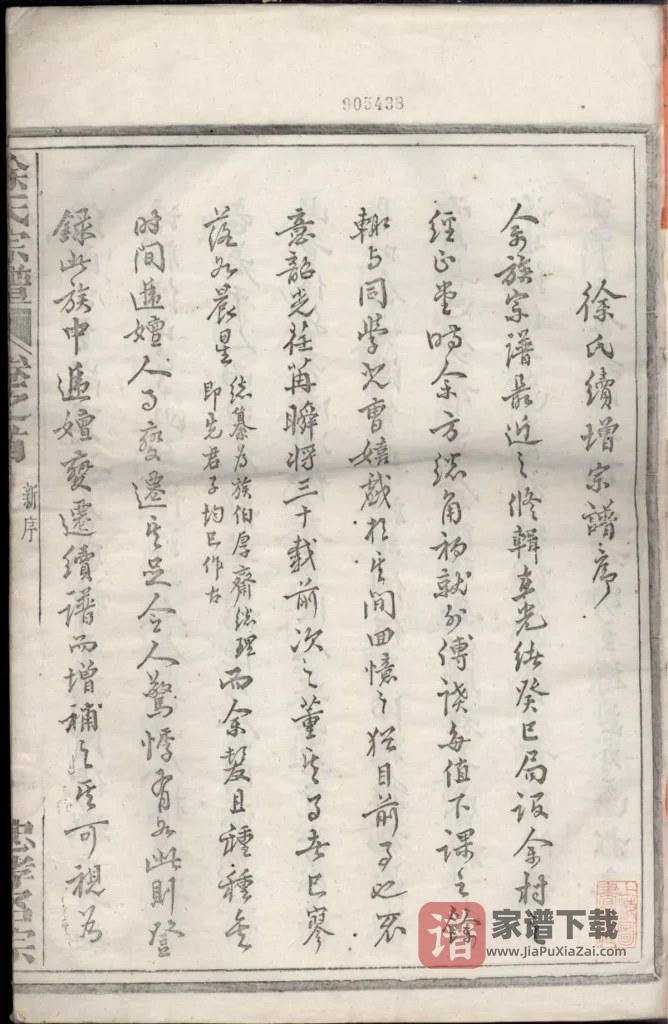 905438
徐氏續增宗譜序
余族宗譜最近之修輯在光緒癸巳局設余村之
經正堂時余方總角初就外傅讀每值下課之餘
輒与同學兒曹嬉戲於其間回憶之猶目前事也
意韶光荏苒瞬將三十載前次之董其事者已寥
落如晨星
總纂為族伯厚齋總理
即先君子均已作古
而余髮且種種矣
時間遞嬗人事變遷其足令人驚悸有如此則登
錄此族中遞嬗變遷續譜而增補之其可視為
徐氏宗譜
卷之首
新序
忠孝名宗
譜
家谱下载
www.JiaPuXiaZai.com